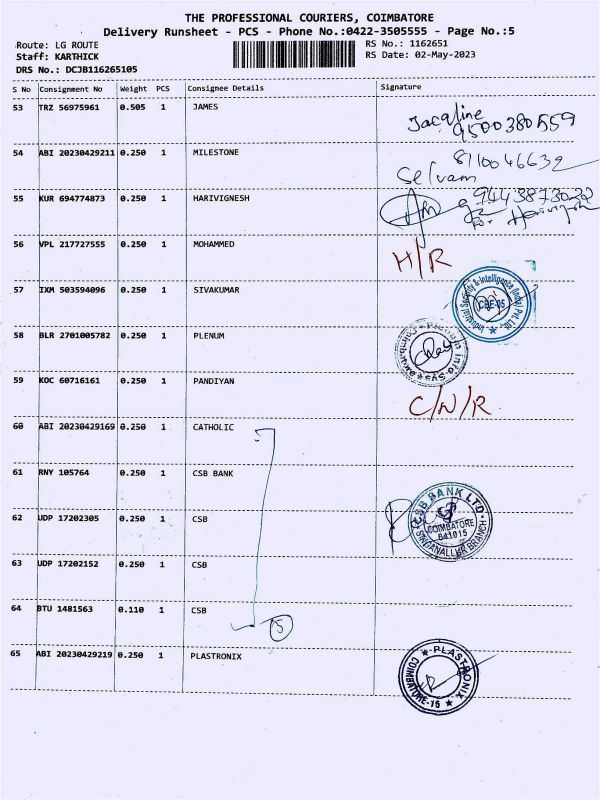 THE PROFESSIONAL COURIERS, COIMBATORE
Delivery Runsheet - PCS - Phone No.:0422-3505555 - Page No.:5
Route: LG ROUTE
Staff: KARTHICK
DRS No.: DCJB116265105
RS No.: 1162651
RS Date: 02-May-2023
S No Consignment No Weight PCS Consignee Details Signature
53 TRZ 56975961 0.505 1 JAMES
Jacqline
9500380559
54 ABI 20230429211 0.250 1 MILESTONE
8110046632
Selvam
55 KUR 694774873 0.250 1 HARIVIGNESH
for Harivignesh
56 VPL 217727555 0.250 1 MOHAMMED
H/R
57 IXM 503594096 0.250 1 SIVAKUMAR
Industrial Security & Intelligence (India) Pvt. Ltd.,
CBE-15
58 BLR 2701005782 0.250 1 PLENUM
Plenum Info Sys
Coimbatore
59 KOC 60716161 0.250 1 PANDIYAN
C/N/R
60 ABI 20230429169 0.250 1 CATHOLIC
61 RNY 105764 0.250 1 CSB BANK
62 UDP 17202305 0.250 1 CSB
CSB BANK LTD
COIMBATORE
641015
SINGANALLUR BRANCH
63 UDP 17202152 0.250 1 CSB
64 BTU 1481563 0.110 1 CSB
5
65 ABI 20230429219 0.250 1 PLASTRONIX
PLASTRONIX
COIMBATORE-15